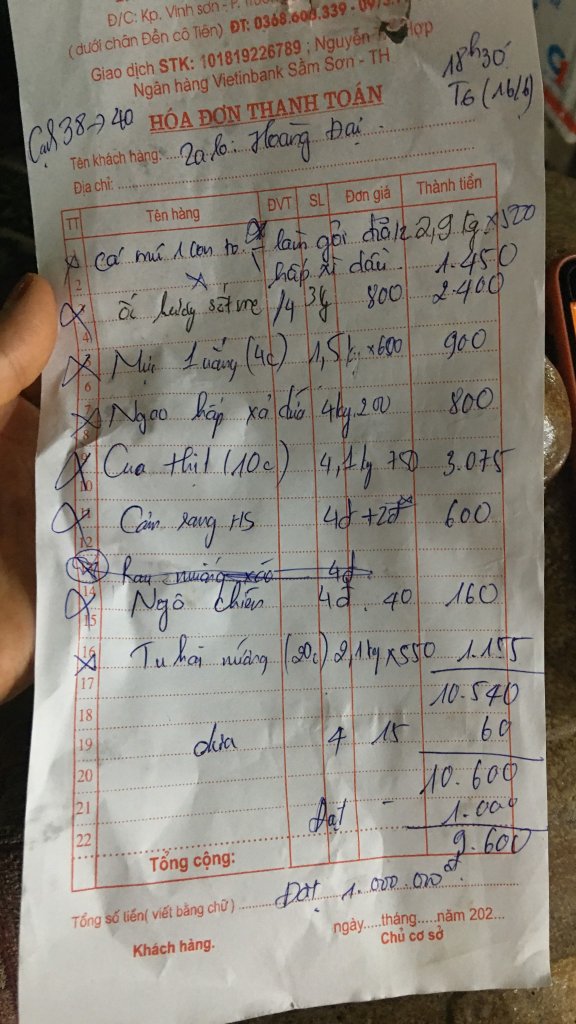 Đ/C: Kp. Vinh sơn - P.
( dưới chân Đền cô Tiên) ĐT: 0368.606.339 - 097
Giao dịch STK: 101819226789 ; Nguyễn Hợp
Ngân hàng Vietinbank Sầm Sơn - TH
18h30
T6 (16/6)
38 → 40
HÓA ĐƠN THANH TOÁN
Tên khách hàng: Zalo: Hoàng Đại
Địa chỉ:
TT Tên hàng ĐVT SL Đơn giá Thành tiền
Cá mú 1 con to làm gỏi 2,9 kg x500
2 hấp xì dầu 1.450
ốc hương sốt me 3kg 800 2.400
4
Mực 1 nắng (4c) 1,5k x600 900
6
Ngao hấp xả dứa 4kg 200 800
8
Cua thịt (10c) 4,1kg 750 3.075
10
Cơm rang HS 4đ + 2đ 600
12
Rau muống xào 4đ
14 Ngô chiên 4đ. 40 160
15
16 Tu hài nướng (20c) 2,1kg x550 1.155
17 10.540
18
19 dừa 4 15 60
20 10.600
21 Đặt - 1.000
22 9.600
Tổng cộng:
Tổng số tiền( viết bằng chữ ) Đặt 1.000.000đ
ngày.....tháng.....năm 202...
Khách hàng. Chủ cơ sở